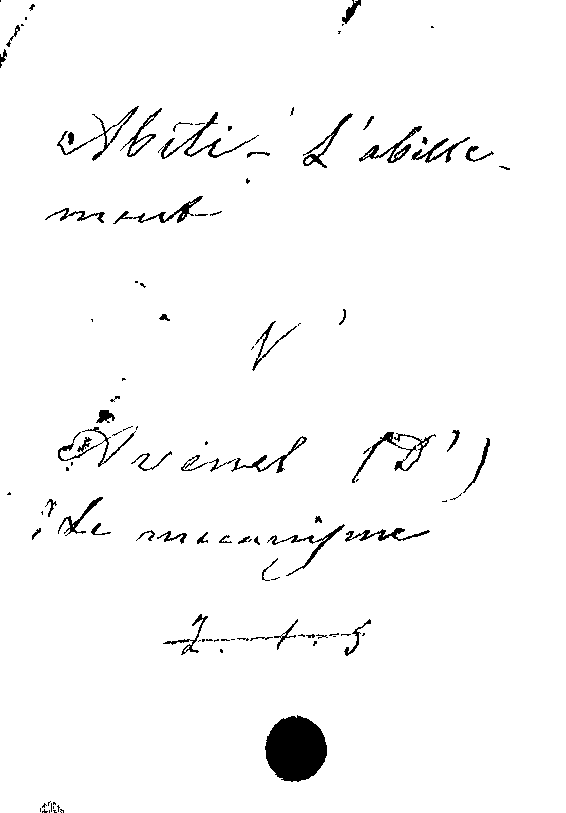 Abiti - L'abille-
ment
V'
Avenel (D')
Le mecanisme
2.1.5